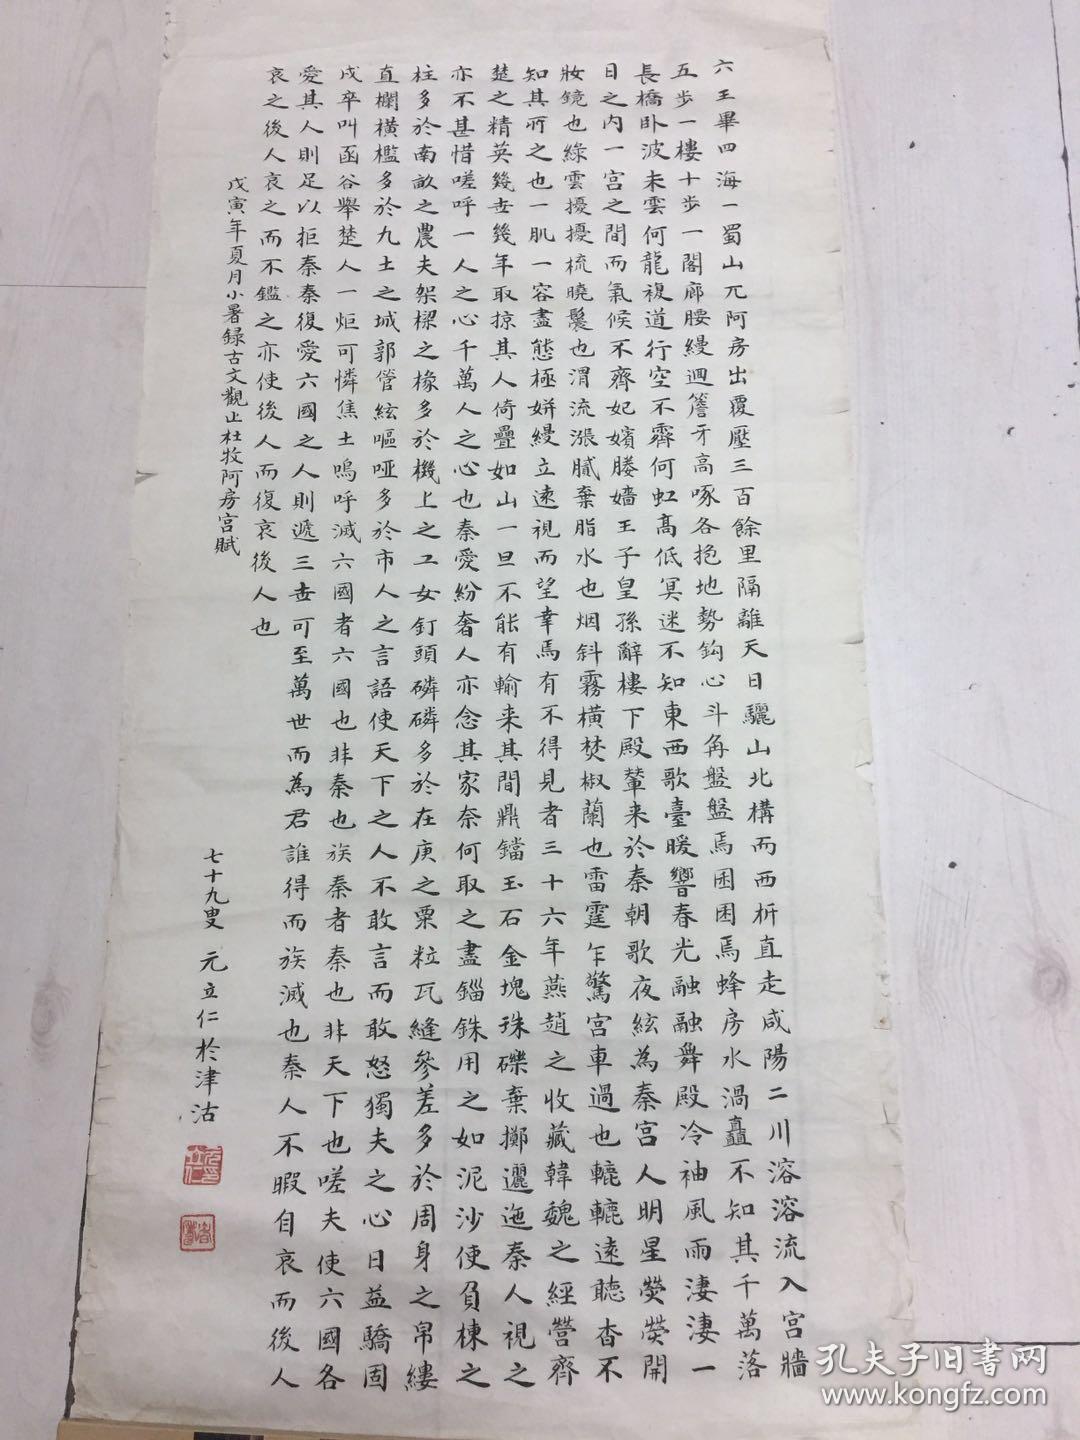 六王畢四海一蜀山兀阿房出覆壓三百餘里隔離天日驪山北構而西析直走咸陽二川溶溶流入宮牆
五步一樓十步一閣廊腰縵迴簷牙高啄各抱地勢鈎心斗角盤盤焉囷囷焉蜂房水渦矗不知其千萬落
長橋卧波未雲何龍複道行空不霽何虹高低冥迷不知東西歌臺暖響春光融融舞殿冷袖風雨淒淒一
日之內一宮之間而氣候不齊妃嬪媵嬙王子皇孫辭樓下殿輦来於秦朝歌夜絃為秦宮人明星熒熒開
妝鏡也綠雲擾擾梳曉鬟也渭流漲膩棄脂水也烟斜霧橫焚椒蘭也雷霆乍驚宮車過也轆轆遠聽杳不
知其所之也一肌一容盡態極妍縵立遠視而望幸焉有不得見者三十六年燕趙之收藏韓魏之經營齊
楚之精英幾世幾年取掠其人倚疊如山一旦不能有輸来其間鼎鐺玉石金塊珠礫棄擲邐迤秦人視之
亦不甚惜嗟呼一人之心千萬人之心也秦愛紛奢人亦念其家奈何取之盡錙銖用之如泥沙使負棟之
柱多於南畝之農夫架樑之椽多於機上之工女釘頭磷磷多於在庾之粟粒瓦縫參差多於周身之帛縷
直欄橫檻多於九土之城郭管絃嘔啞多於市人之言語使天下之人不敢言而敢怒獨夫之心日益驕固
戍卒叫函谷舉楚人一炬可憐焦土嗚呼滅六國者六國也非秦也族秦者秦也非天下也嗟夫使六國各
愛其人則足以拒秦秦復愛六國之人則遞三世可至萬世而為君誰得而族滅也秦人不暇自哀而後人
哀之後人哀之而不鑑之亦使後人而復哀後人也
戊寅年夏月小暑録古文觀止杜牧阿房宮賦
七十九叟 元立仁於津沽
孔夫子旧書网
www.kongfz.com